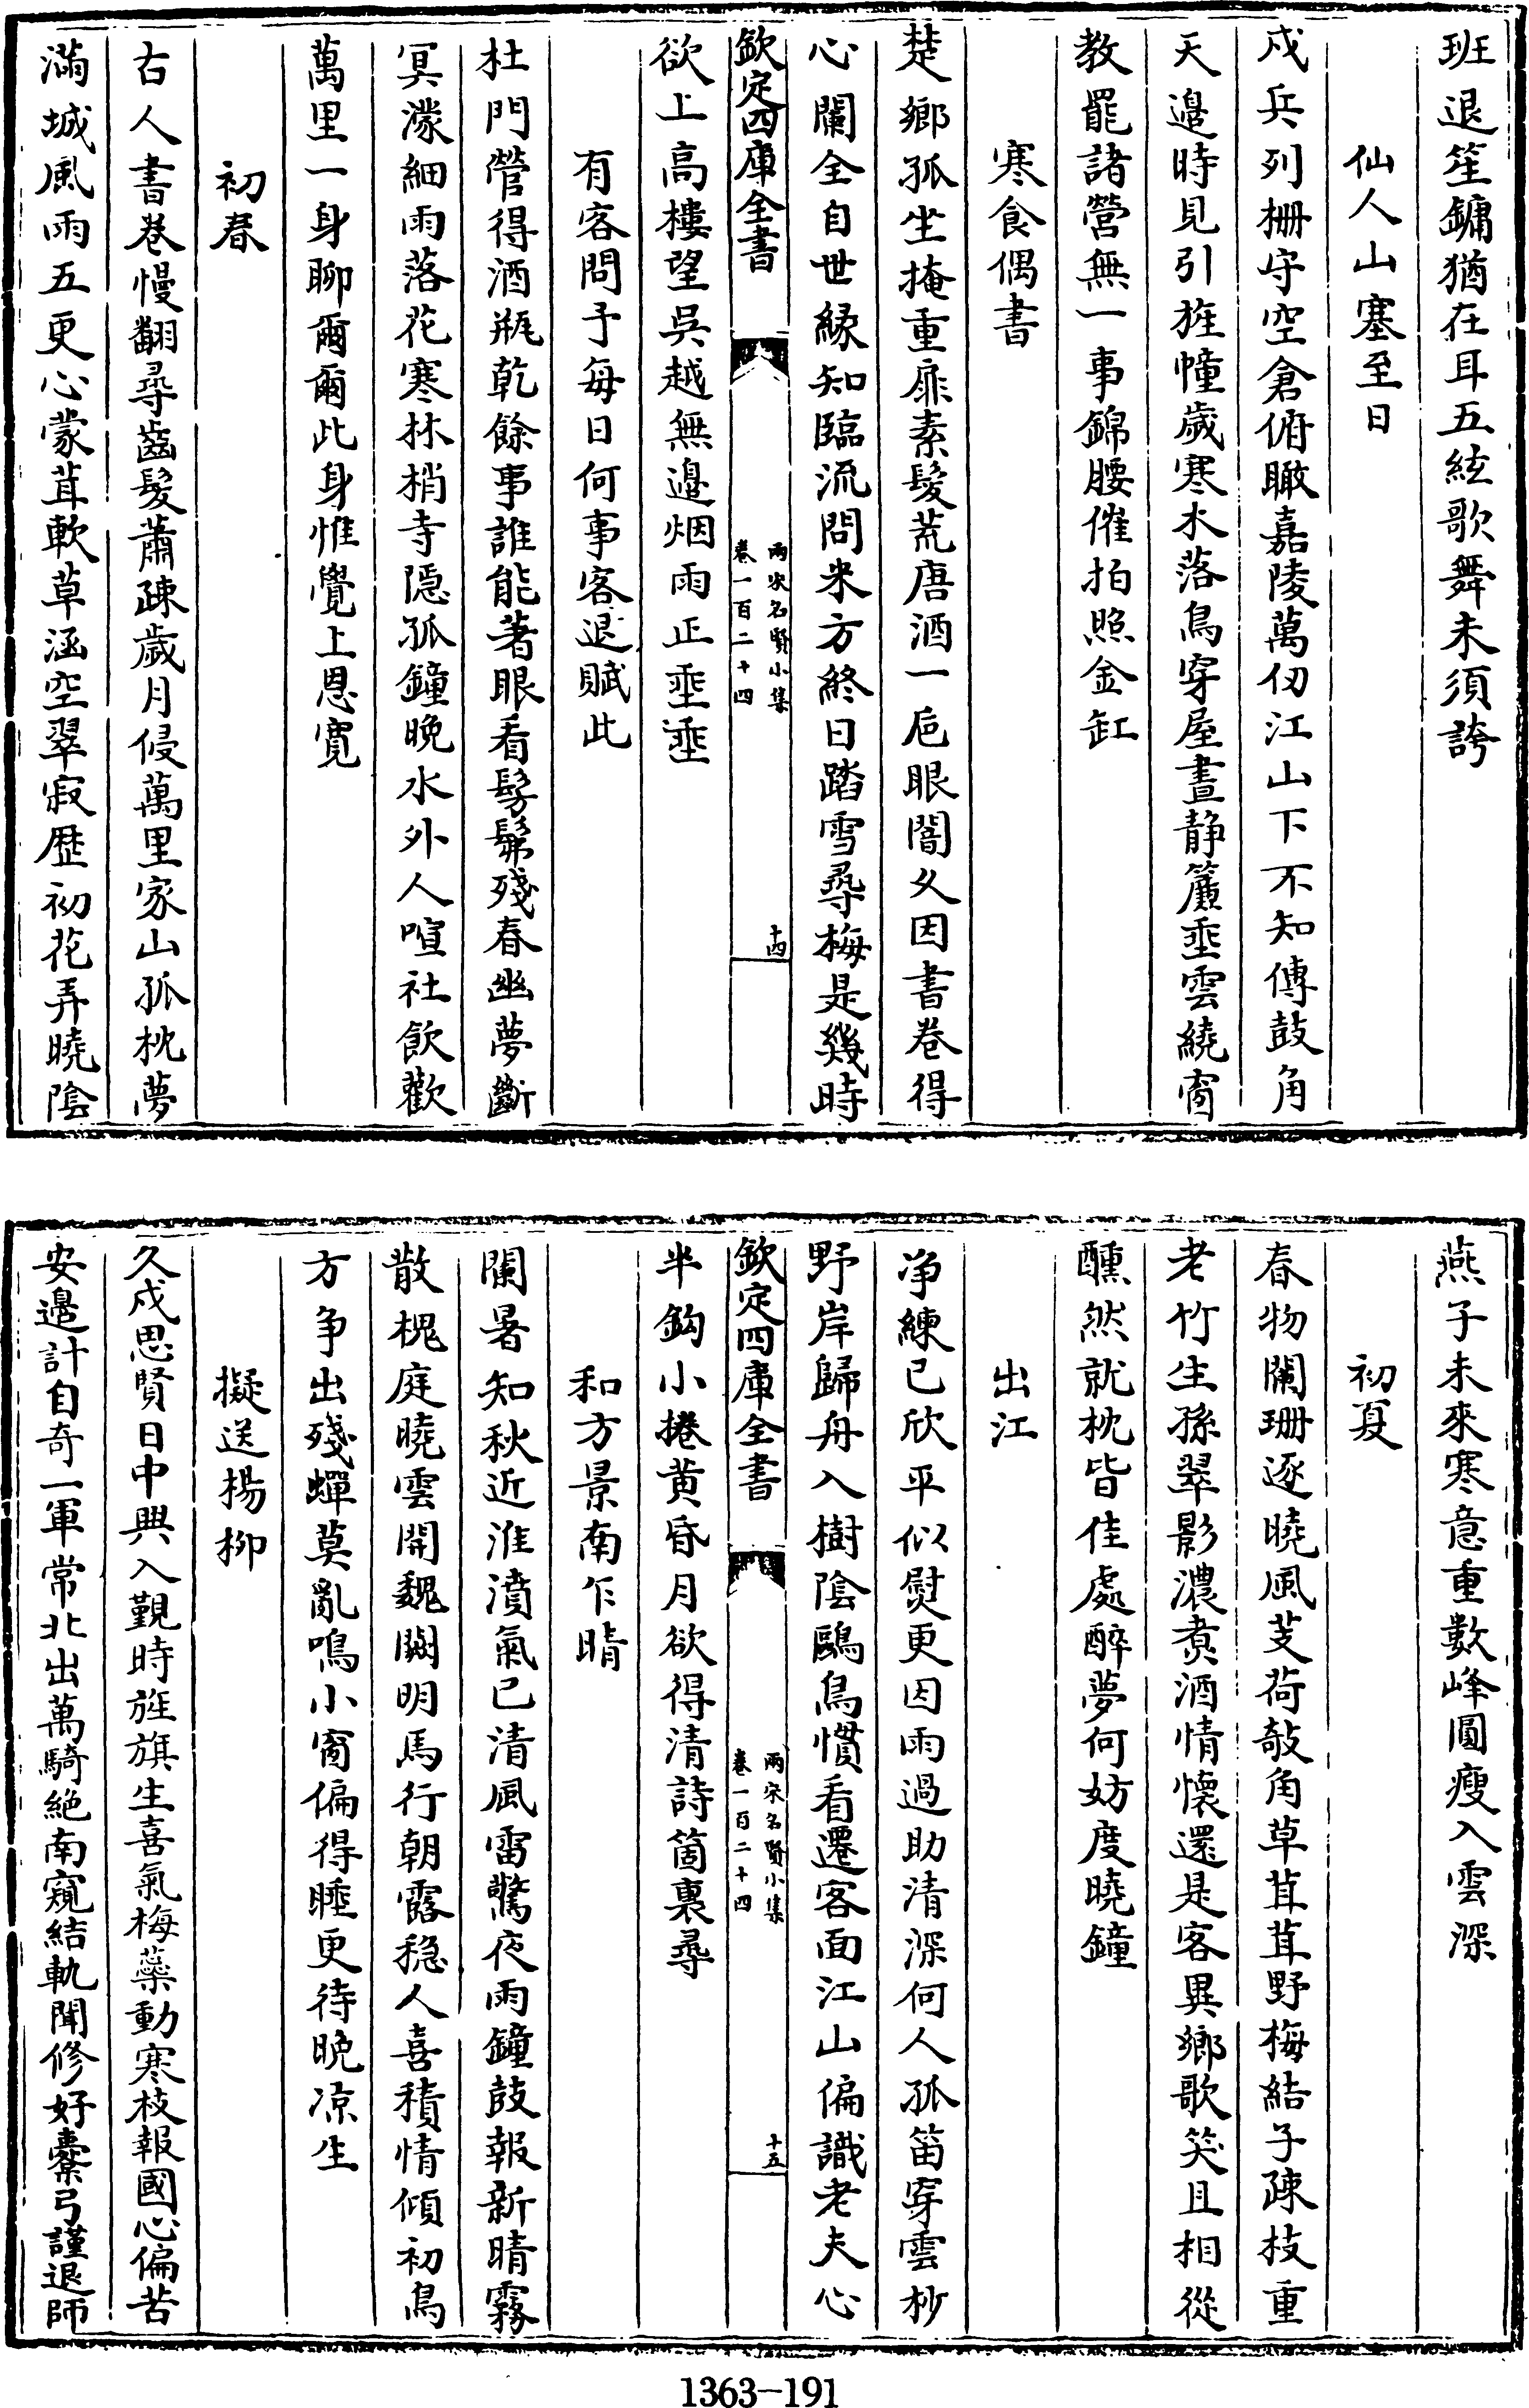 班退笙鏞猶在耳五絃歌舞未須誇
仙人山塞至日
戍兵列柵守空倉俯瞰嘉陵萬仞江山下不知傳鼓角
天邉時見引旌幢歳寒木落鳥穿屋晝静簾垂雲繞窗
教罷諸營無一事錦腰催拍照金缸
寒食偶書
楚鄉孤坐掩重扉素髮荒唐酒一巵眼闇久因書卷得
心闌全自世縁知臨流問米方終日踏雪尋梅是幾時
欽定四庫全書
兩宋名賢小集
卷一百二十四
十四
欲上高樓望吳越無邉烟雨正垂垂
有客問予每日何事客退賦此
杜門管得酒瓶乾餘事誰能著眼看髣髴殘春幽夢斷
冥濛細雨落花寒林梢寺隠孤鐘晚水外人喧社飲歡
萬里一身聊爾爾此身惟覺上恩寛
初春
古人書卷慢翻尋齒髮蕭疎歳月侵萬里家山孤枕夢
滿城風雨五更心蒙茸軟草涵空翠寂歴初花弄曉陰
燕子未來寒意重數峰圓瘦入雲深
初夏
春物闌珊逐曉風芰荷敧角草茸茸野梅結子疎枝重
老竹生孫翠影濃煑酒情懷還是客異鄉歌笑且相從
醺然就枕皆佳處醉夢何妨度曉鐘
出江
净練已欣平似熨更因雨過助清深何人孤笛穿雲杪
野岸歸舟入樹陰鷗鳥慣看遷客面江山偏識老夫心
欽定四庫全書
兩宋名賢小集
卷一百二十四
十五
半鈎小捲黄昏月欲得清詩箇裏尋
和方景南乍晴
闌暑知秋近淮濆氣已清風雷驚夜雨鐘鼓報新晴霧
散槐庭曉雲開魏闕明馬行朝露穏人喜積情傾初鳥
方争出殘蟬莫亂鳴小窗偏得睡更待晚凉生
擬送楊柳
久戍思賢日中興入覲時旌旗生喜氣梅蘂動寒枝報國心偏苦
安邉計自奇一軍常北出萬騎絶南窺結軌聞修好櫜弓謹退師
1363—191